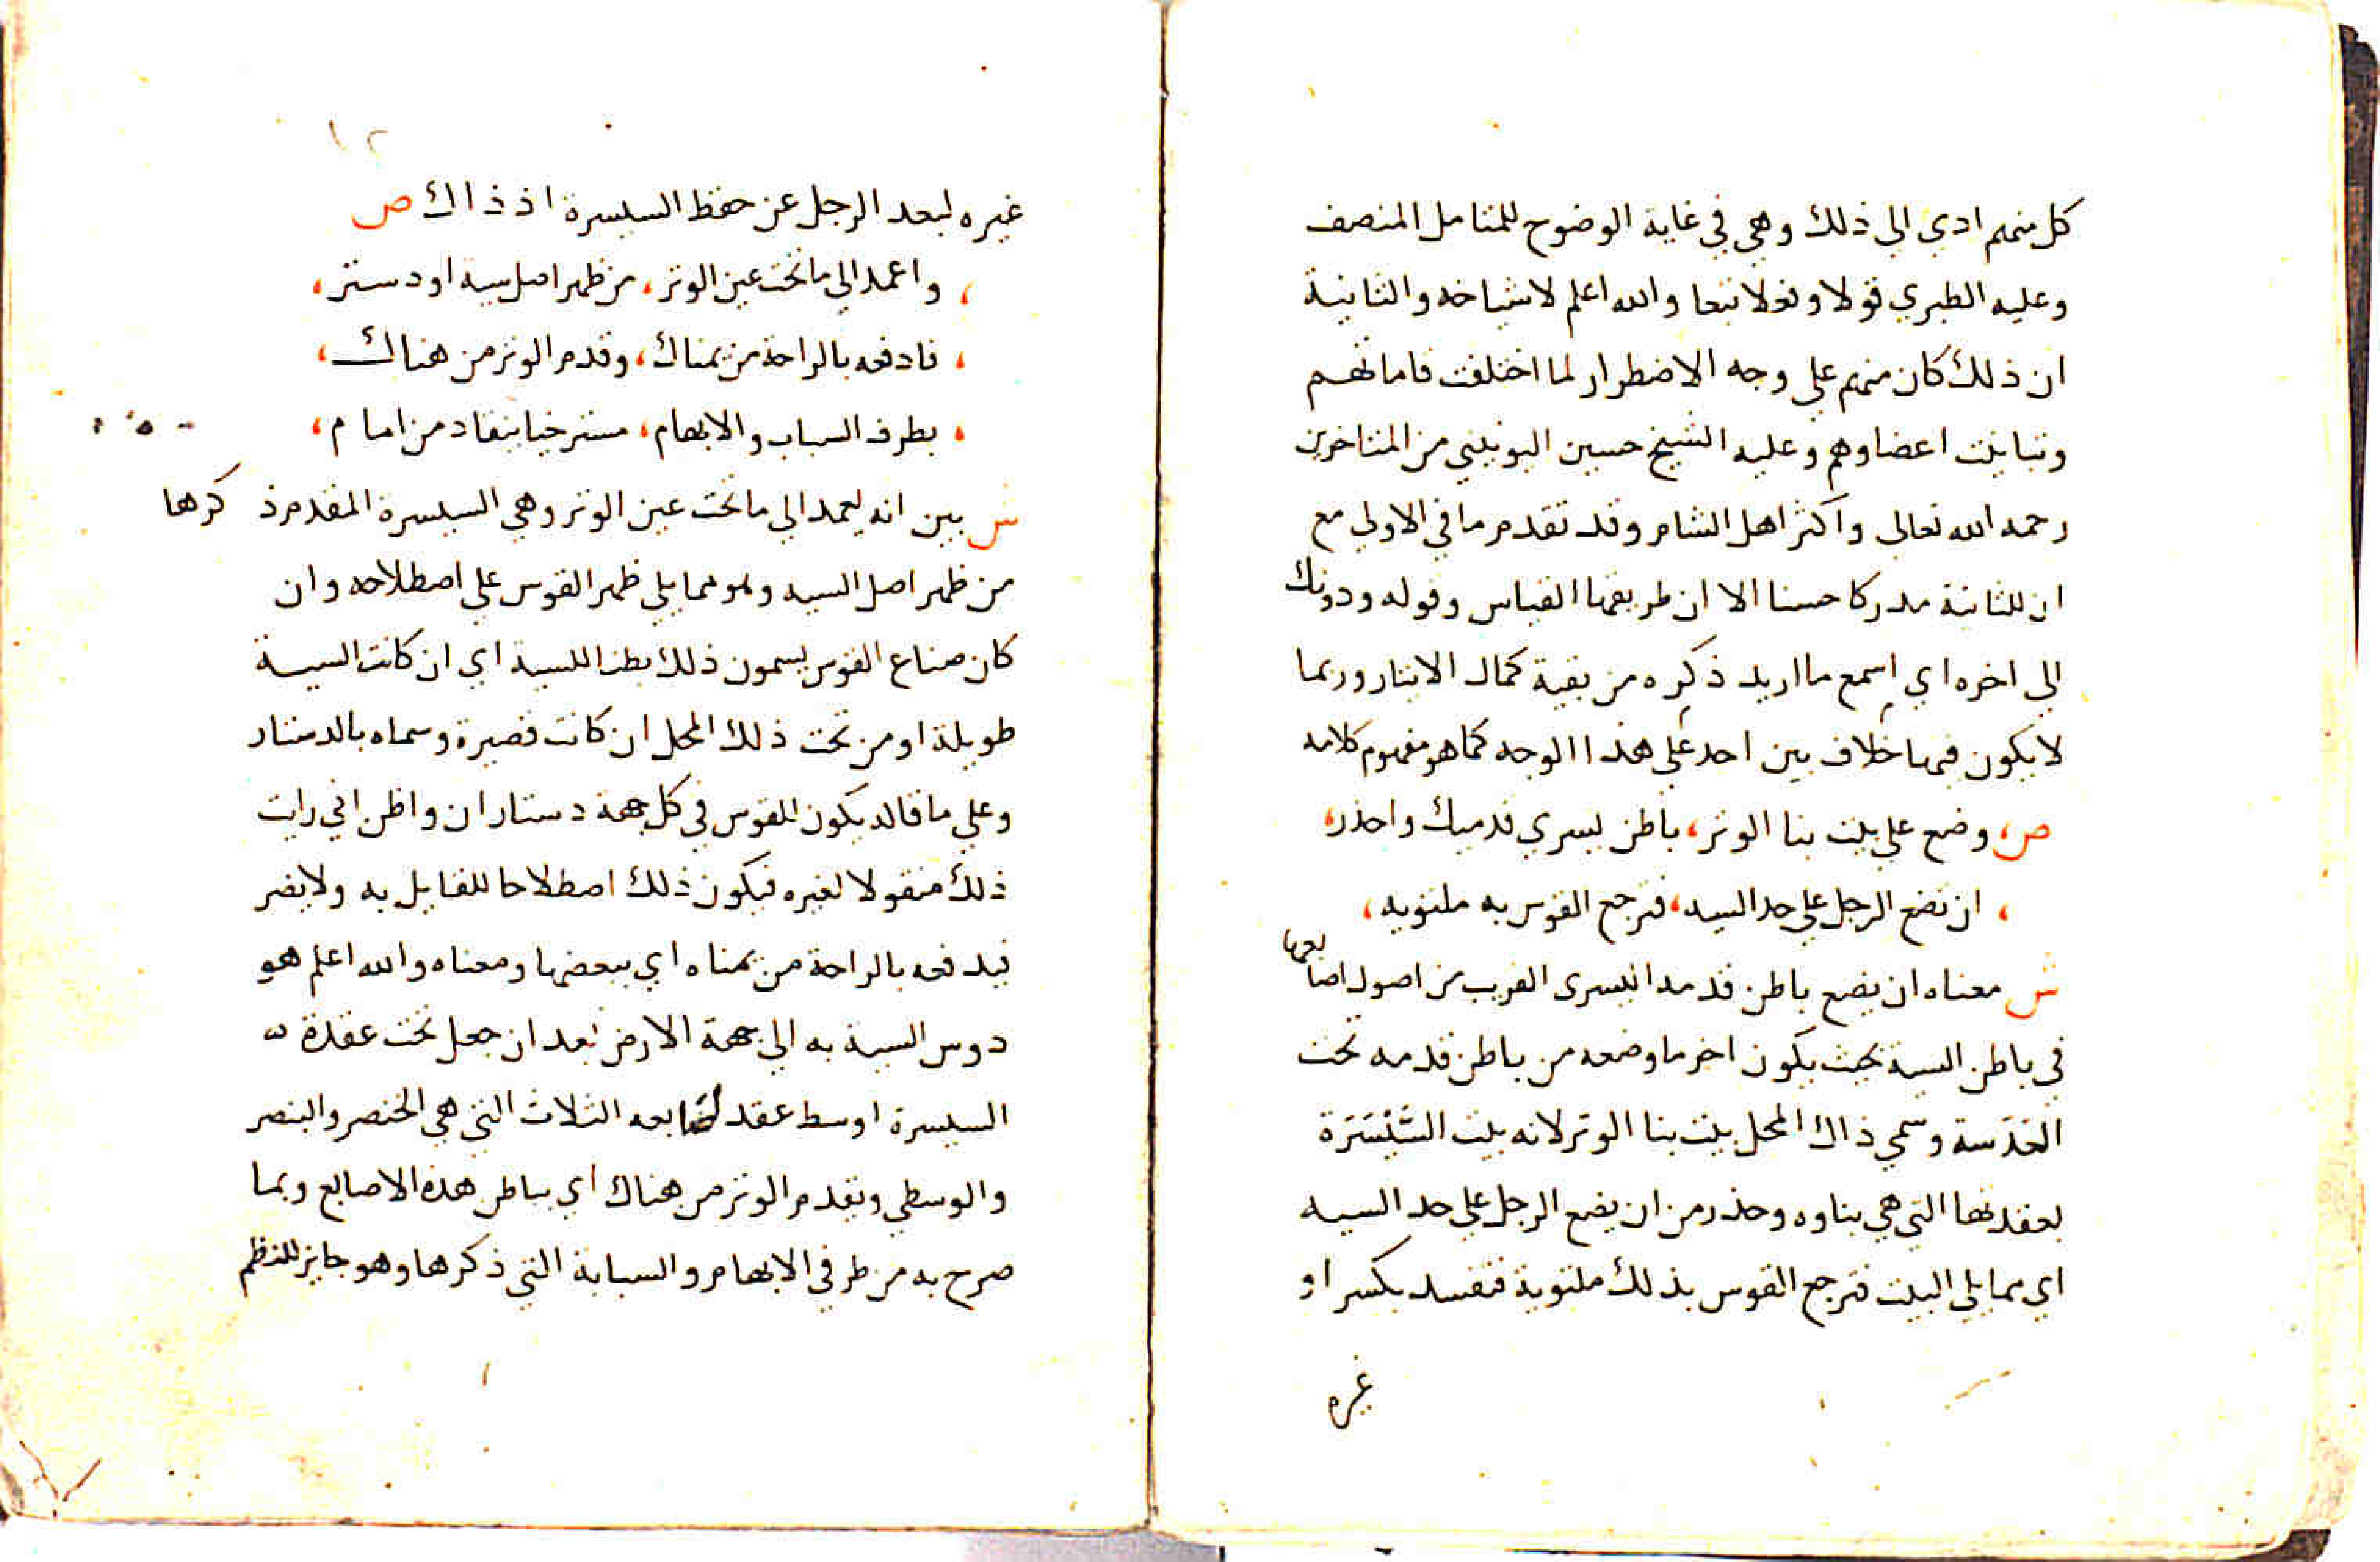 كل منهم ادي الي ذلك وهي في غاية الوضوح للمتامل المنصف
وعليه الطبري قولا وفعلا تبعا والله اعلم لاشياخه والثانية
ان ذلك كان منهم علي وجه الاضطرار لما اختلفت قاماتهم
وتباينت اعضاوهم وعليه الشيخ حسين اليونيني من المتاخرين
رحمه الله تعالي واكثر اهل الشام وقد تقدم ما في الاولي مع
ان للثانية مدركا حسنا الا ان طريقها القياس وقوله ودونك
الي اخره اي اسمع ما اريد ذكره من بقية كمال الايتار وربما
لا يكون فيها خلاف بين احد علي هذا الوجه كما هو مفهوم كلامه
ص، وضع علي بيت بنا الوتر، باطن يسري قدميك واحذر،
، ان تضع الرجل علي حد السيه، فترجع القوس به ملتويه،
ش معناه ان يضع باطن قدمه اليسرى القريب من اصول اصابعها
في باطن السية بحيث يكون اخر ما وضعه من باطن قدمه تحت
وسمي ذاك المحل بيت بنا الوتر لانه بيت السَّيْسَرَة
بعقدتها التي هي بناوه وحذر من ان يضع الرجل علي حد السيه
اي مما يلي البيت فترجع القوس بذلك ملتوية فتفسد بكسر او
غيره
١٢
غيره لبعد الرجل عن حفظ السيسرة اذ ذاك ص
، واعمد الي ما تحت عين الوتر، من ظهر اصل سية او دستر،
، فادفعه بالراحة من يمناك، وقدم الوتر من هناك،
، بطرف السباب والابهام، مسترخيا ينقاد من امام،
ش بين انه يعمد الي ما تحت عين الوتر وهي السيسرة المقدم ذكرها
من ظهر اصل السيه وهو مما يلي ظهر القوس علي اصطلاحه وان
كان صناع القوس يسمون ذلك بطن السية اي ان كانت السية
طويلة او من تحت ذلك المحل ان كانت قصيرة وسماه بالدستار
وعلي ما قاله يكون للقوس في كل جهة دستاران واظن اني رايت
ذلك منقولا لغيره فيكون ذلك اصطلاحا للقايل به ولا يضر
فيدفعه بالراحة من يمناه اي ببعضها ومعناه والله اعلم هو
دوس السية به الي جهة الارض بعد ان جعل تحت عقدة
السيسرة اوسط عقد اصابعه الثلاث التي هي الخنصر والبنصر
والوسطي ويقدم الوتر من هناك اي بباطن هذه الاصابع وبما
صرح به من طرفي الابهام والسبابة التي ذكرها وهو جايز للنظم